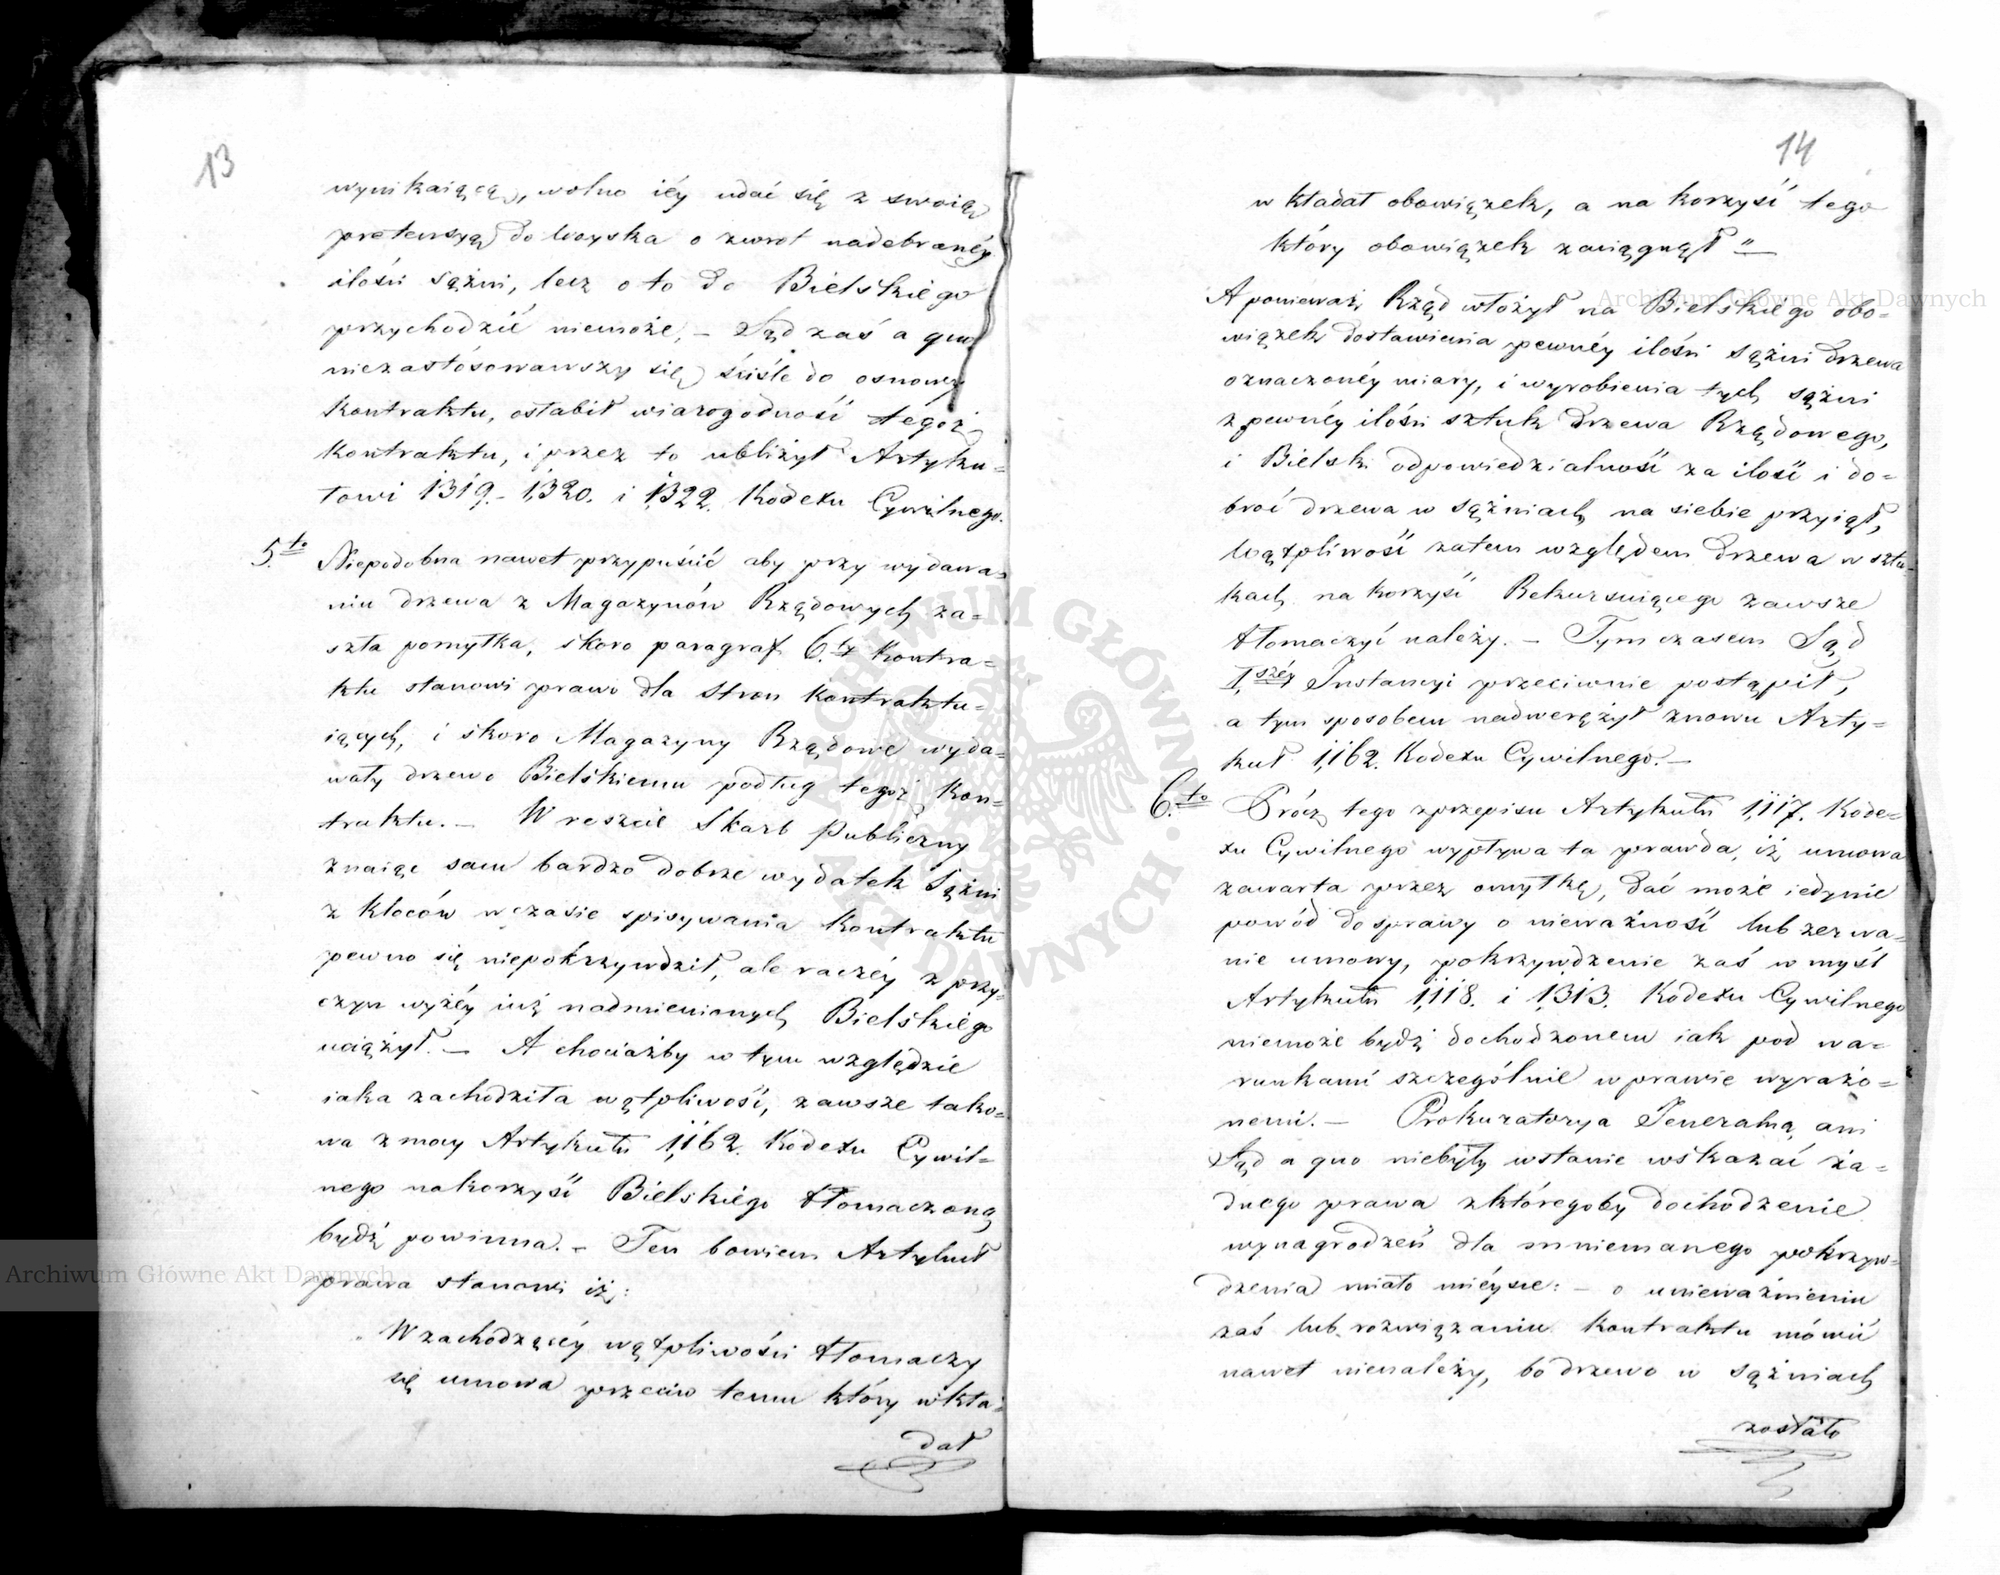 13
wynikaiącą, wolno iéy udać się z swoią
pretensyą do Woyska o zwrot nadebranéy
ilości sążni, lecz o to do Bielskiego
przychodzić niemoże, – Sąd zaś a quo
niezastósowawszy się ściśle do osnowy
Kontraktu, osłabił wiarogodność tegoż
Kontraktu, i przez to ubliżył Artyku=
łowi 1319. 1320. i 1322. Kodexu Cywilnego.
5.to Niepodobna nawet przypuścić aby przy wydawa=
niu drzewa z Magazynów Rządowych za=
szła pomyłka, skoro paragraf 6.ty Kontra=
ktu stanowi prawo dla Stron Kontraktu=
iących, i skoro Magazyny Rządowe wyda=
wały drzewo Bielskiemu podług tegoż Kon=
traktu. – W reszcie Skarb Publiczny
znaiąc sam bardzo dobrze wydatek Sążni
z kloców w czasie spisywania Kontraktu
pewno się niepokrzywdził, ale raczéy z przy=
czyn wyżéy iuż nadmienionych Bielskiego
uciążył. – A chociażby w tym względzie
iaka zachodziła wątpliwość, zawsze tako=
wa z mocy Artykułu 1,162. Kodexu Cywil=
nego na korzyść Bielskiego tłomaczoną
bydź powinna. – Ten bowiem Artykuł
prawa stanowi iż:
„W zachodzącéy wątpliwości tłomaczy
się umowa przeciw temu który wkła=
dał
14
wkładał obowiązek, a na korzyść tego
który obowiązek zaciągnął" –
A ponieważ Rząd włożył na Bielskiego obo=
wiązek dostawienia pewnéy ilości sążni drzewa
oznaczonéy miary, i wyrobienia tych sążni
z pewnéy ilości sztuk drzewa Rządowego,
i Bielski odpowiedzialność za ilość i do=
broć drzewa w sążniach na siebie przyiął,
Wątpliwość zatem względem drzewa w sztu=
kach na korzyść Rekursuiącego zawsze
tłomaczyć należy. – Tymczasem Sąd
I.széy Instancyi przeciwnie postąpił,
a tym sposobem nadwerężył znowu Arty=
kuł 1,162. Kodexu Cywilnego. –
6.to Prócz tego z przepisu Artykułu 1,117. Kode=
xu Cywilnego wypływa ta prawda, iż umowa
zawarta przez omyłkę, dać może iedynie
powód do sprawy o nieważność lub zerwa=
nie umowy, pokrzywdzenie zaś w myśl
Artykułu 1,118. i 1,313. Kodexu Cywilnego
niemoże bydź dochodzonem iak pod wa=
runkami szczególnie w prawie wyrażo=
nemi. – Prokuratorya Jeneralna, ani
Sąd a quo niebyły wstanie wskazać ża=
dnego prawa z któregoby dochodzenie
wynagrodzeń dla mniemanego pokrzyw=
dzenia miało miéysce: – o unieważnieniu
zaś lub rozwiązaniu Kontraktu mówić
nawet nienależy, bo drzewo w sążniach
zostało
Archiwum Główne Akt Dawnych
Archiwum Główne Akt Dawnych
ARCHIWUM GŁÓWNE AKT DAWNYCH